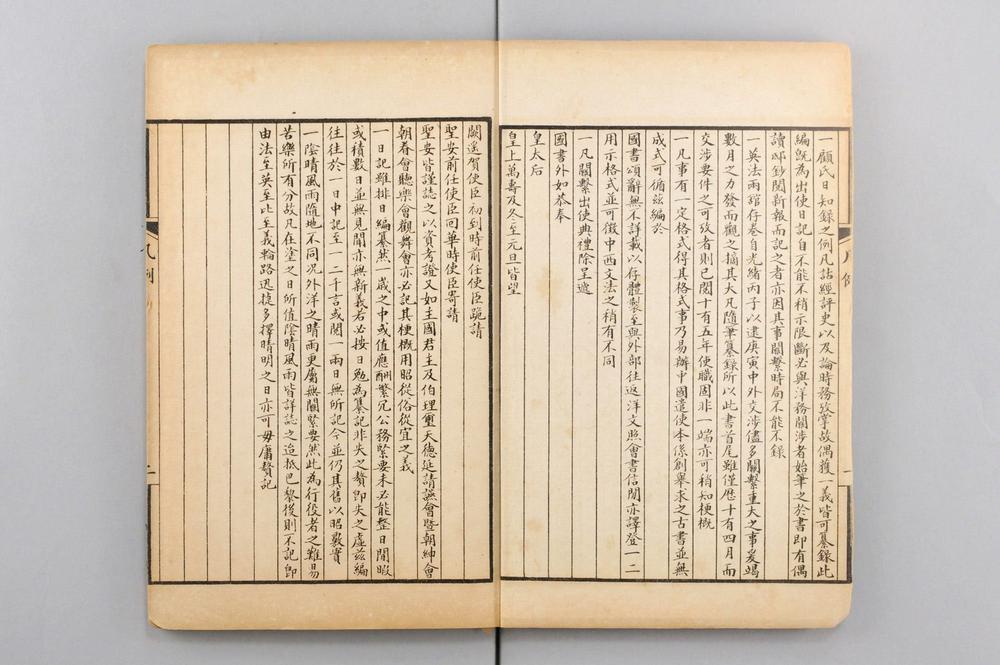 一顧氏日知錄之例凡詁經評史以及論時務攷掌故偶獲一義皆可纂錄此
編旣為出使日記自不能不稍示限斷必與洋務關涉者始筆之於書即有偶
讀邸鈔閱新報而記之者亦因其事關繫時局不能不錄
一英法兩館存卷自光緒丙子以逮庚寅中外交涉儘多關繫重大之事爰竭
數月之力發而觀之摘其大凡隨筆纂錄所以此書首尾雖僅歷十有四月而
交涉要件之可攷者則已閱十有五年使職固非一端亦可稍知梗概
一凡事有一定格式得其格式事乃易辦中國遣使本係創舉求之古書並無
成式可循茲編於
國書頌辭無不詳載以存體製至與外部往返洋文照會書信閒亦譯登一二
用示格式並可徵中西文法之稍有不同
一凡關繫出使典禮除呈遞
國書外如恭奉
皇太后
皇上萬壽及冬至元旦皆望
闕遙賀使臣初到時前任使臣跪請
聖安前任使臣回華時使臣寄請
聖安皆謹誌之以資考證又如主國君主及伯理璽天德延請讌會暨朝紳會
朝眷會聽樂會觀舞會亦必記其梗概用昭從俗從宜之義
一日記雖排日編纂然一歲之中或值應酬繁冗公務緊要未必能整日閒暇
或積數日並無見聞亦無新義若必按日勉為纂記非失之贅即失之虛茲編
往往於一日中記至一二千言或閱一兩日無所記今並仍其舊以昭覈實
一陰晴風雨隨地不同況外洋之晴雨更屬無關緊要然此為行役者之難易
苦樂所有分故凡在塗之日所值陰晴風雨皆詳誌之迨抵巴黎後則不記即
由法至英至比至義輪路迅捷多擇晴明之日亦可毋庸贅記
凡例
一
二